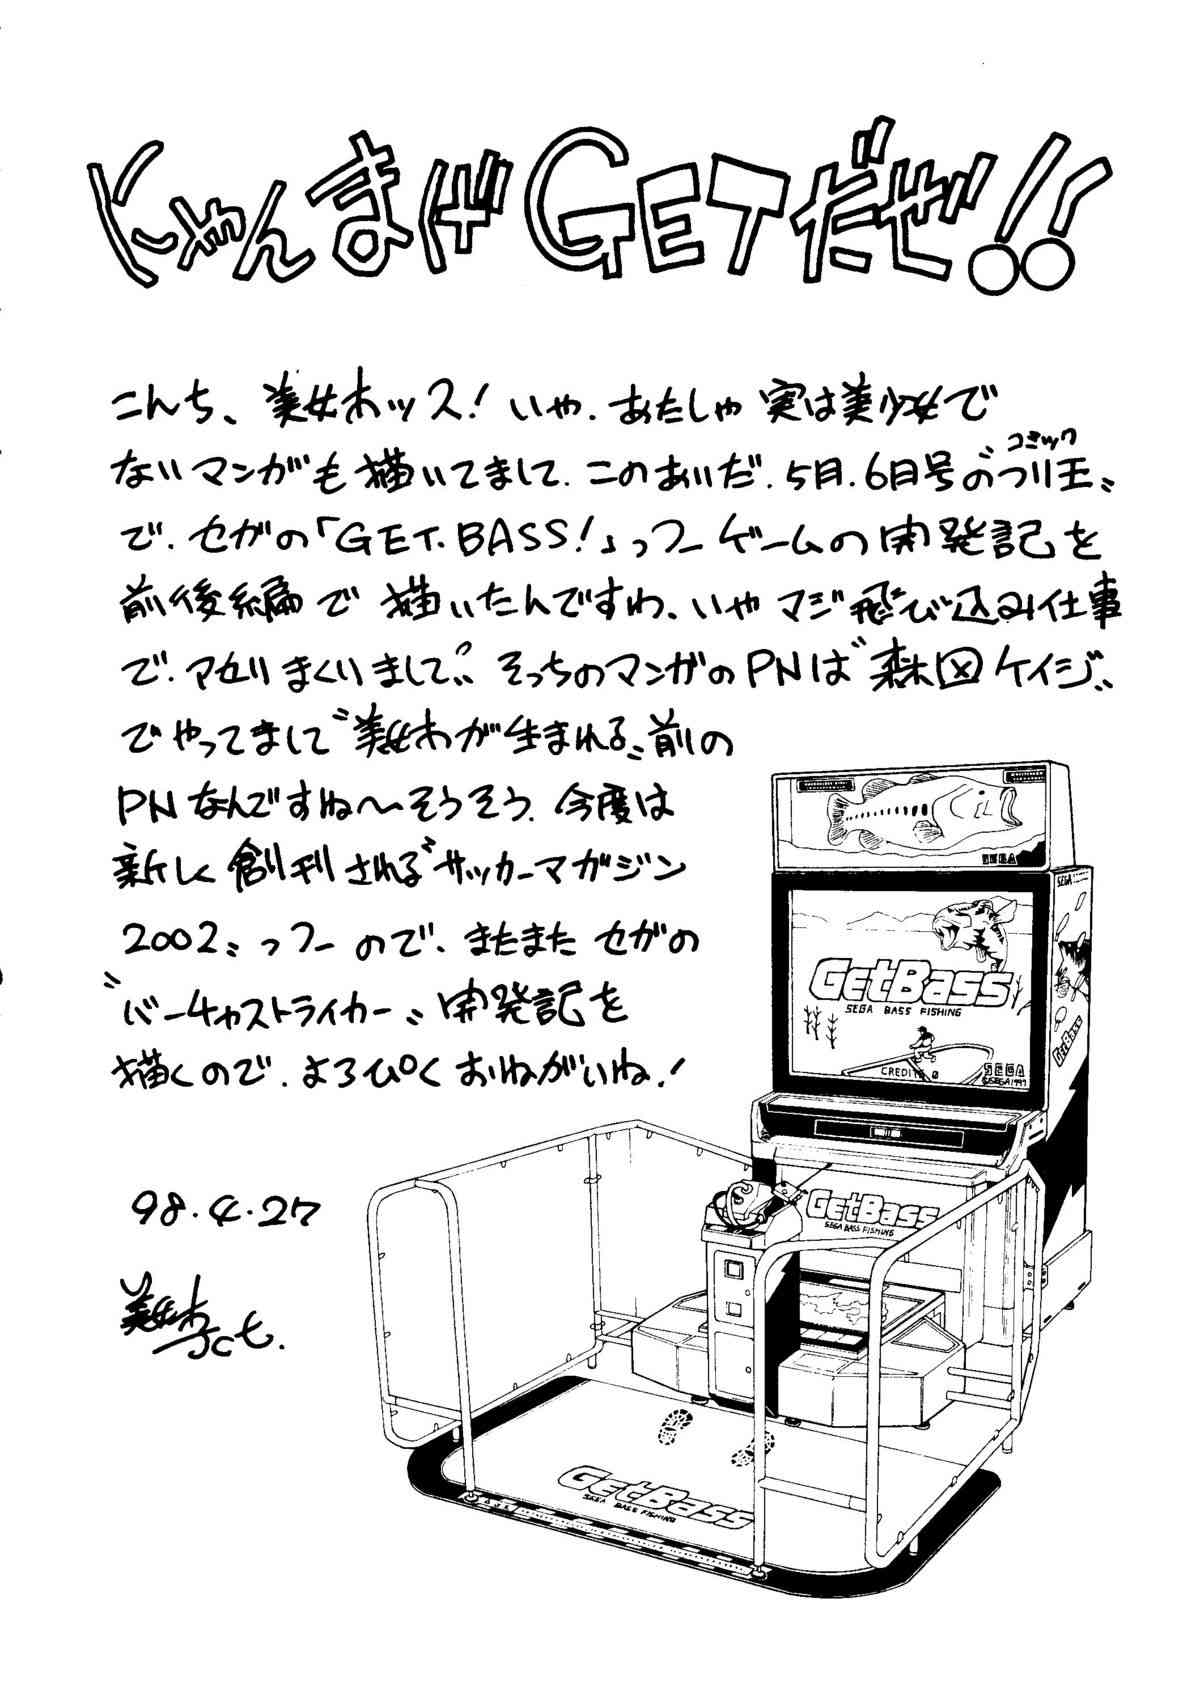 にゃんまげGETだぜ!!
こんち、美女木ッス!いや、あたしゃ実は美少女で
ないマンガも描いてまして、このあいだ、5月、6月号の〝つり王〟
コミック
で、セガの「GET.BASS!」っつーゲームの開発記を
前後編で描いたんですわ、いやマジ飛び込み仕事
で、アセりまくりまして。そっちのマンガのPNは〝森図ケイジ〟
でやってまして〝美女木が生まれる〟前の
PNなんですね〜そうそう、今度は
新しく創刊される〝サッカーマガジン
2002〟っつーので、またまたセガの
〝バーチャストライカー〟開発記を
描くので、よろぴくおねがいね!
98.4.27
美女木
Jct.
SEGA
SEGA
GetBass
SEGA BASS FISHING
CREDITS 0
SEGA
©SEGA 1997
GetBass
GetBass
SEGA BASS FISHING
GetBass
SEGA BASS FISHING